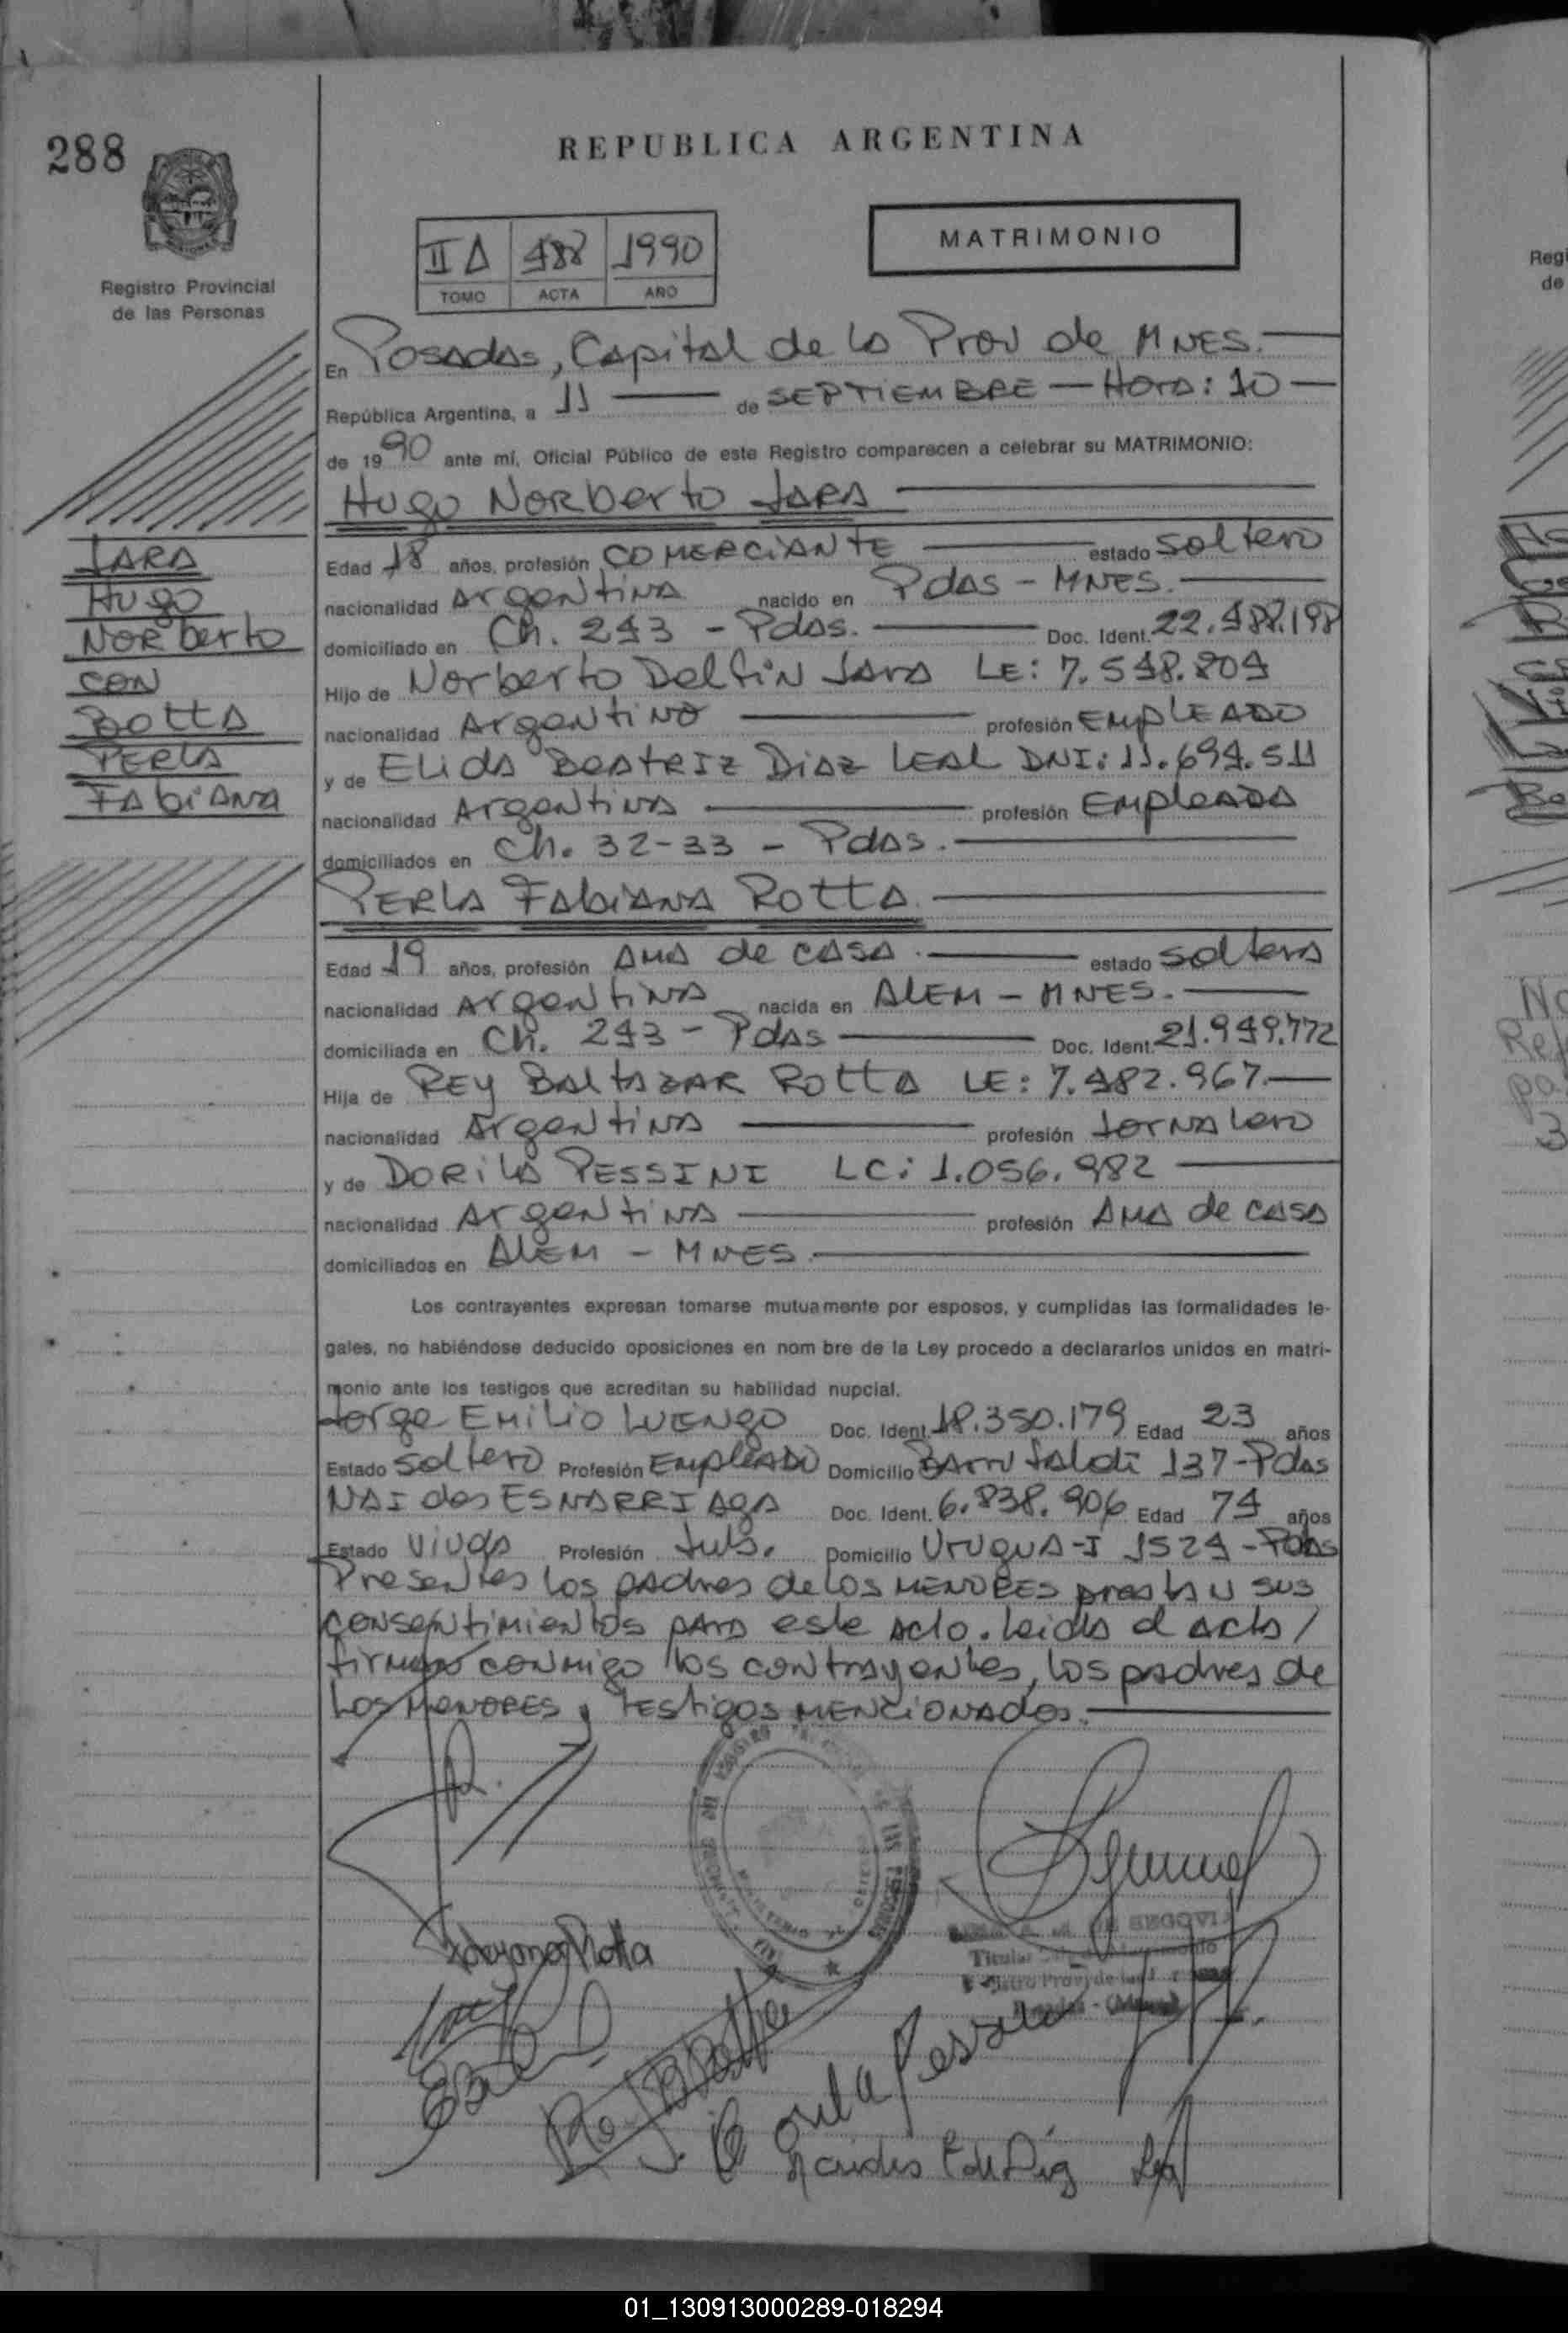 288
REPUBLICA ARGENTINA
MATRIMONIO
II A 488 1990
TOMO ACTA AÑO
Registro Provincial
de las Personas
En Posadas, Capital de la Prov de MNES.
República Argentina, a 11 de SEPTIEMBRE - Hora: 10
de 1990 ante mí, Oficial Público de este Registro comparecen a celebrar su MATRIMONIO:
Hugo Norberto JARA
JARA
Hugo
Norberto
CON
ROTTA
PERLA
FABIANA
Edad 18 años, profesión COMERCIANTE estado soltero
nacionalidad Argentina nacido en Pdas - MNES.
domiciliado en Ch. 243 - Pdas. Doc. Ident. 22.488.198
Hijo de Norberto Delfin Jara LE: 7.548.804
nacionalidad Argentino profesión EMPLEADO
y de Elida Beatriz Diaz LEAL DNI: 11.694.511
nacionalidad Argentina profesión Empleada
domiciliados en Ch. 32-33 - Pdas.
PERLA FABIANA ROTTA
Edad 19 años, profesión AMA de CASA. estado soltera
nacionalidad Argentina nacida en ALEM - MNES.
domiciliada en Ch. 243 - Pdas Doc. Ident. 21.949.772
Hija de REY BALTAZAR ROTTA LE: 7.482.967
nacionalidad Argentina profesión Jornalero
y de DORILA PESSINI LC: 1.056.982
nacionalidad Argentina profesión AMA de CASA
domiciliados en ALEM - MNES.
Los contrayentes expresan tomarse mutuamente por esposos, y cumplidas las formalidades le-
gales, no habiéndose deducido oposiciones en nom bre de la Ley procedo a declararlos unidos en matri-
monio ante los testigos que acreditan su habilidad nupcial.
Jorge EMILIO LUENGO Doc. Ident. 18.350.179 Edad 23 años
Estado soltero Profesión EMPLEADO Domicilio 137-Pdas
ESNARRIAGA Doc. Ident. 6.838.906 Edad 74 años
Estado viuda Profesión Jub. Domicilio URUGUA-I 1524-Pdas
Presentes los padres de los MENORES prestan sus
consentimientos para este acto. Leida el acta /
firman conmigo los contrayentes, los padres de
los MENORES y testigos MENCIONADOS.
DE SEGOVIA
01_130913000289-018294